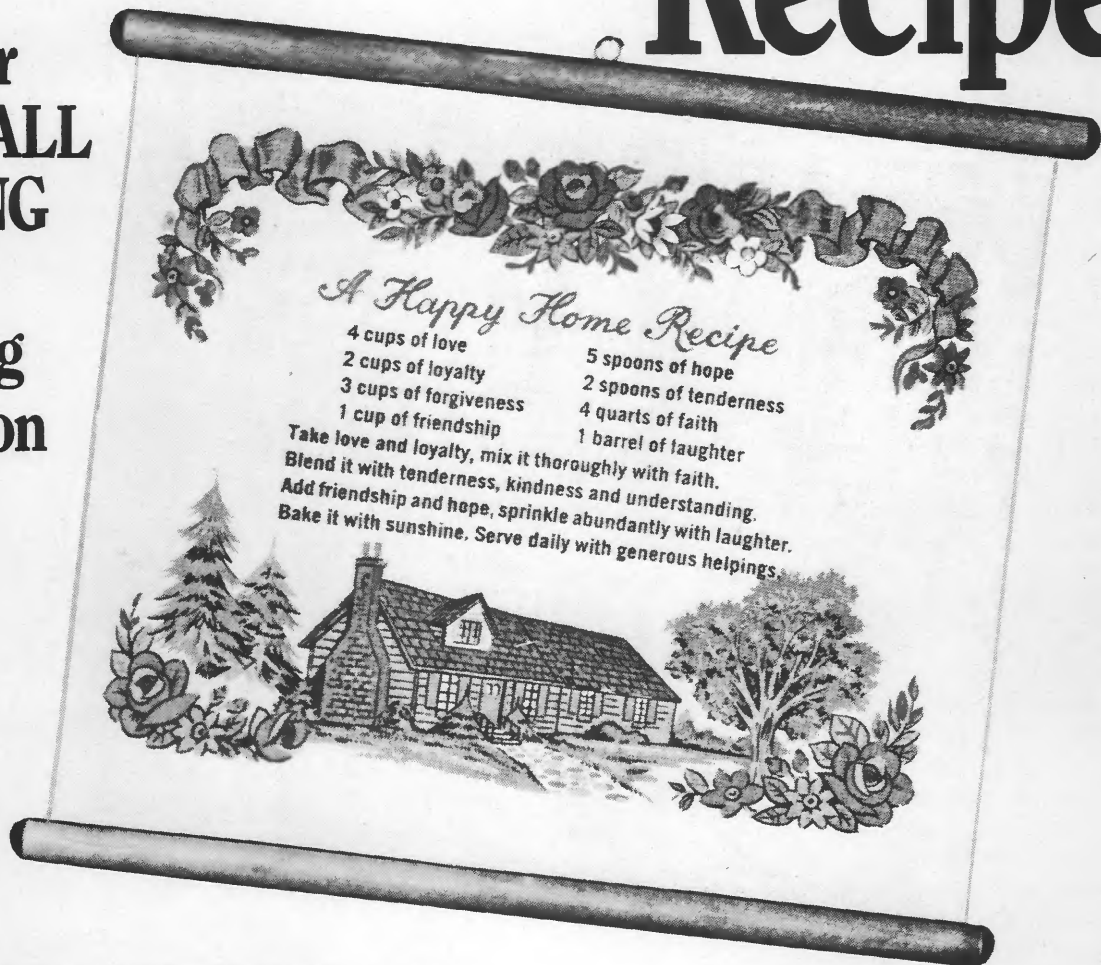 Recipe
r
ALL
NG
g
on
A Happy Home Recipe
4 cups of love
2 cups of loyalty
3 cups of forgiveness
1 cup of friendship
5 spoons of hope
2 spoons of tenderness
4 quarts of faith
1 barrel of laughter
Take love and loyalty, mix it thoroughly with faith.
Blend it with tenderness, kindness and understanding.
Add friendship and hope, sprinkle abundantly with laughter.
Bake it with sunshine. Serve daily with generous helpings.